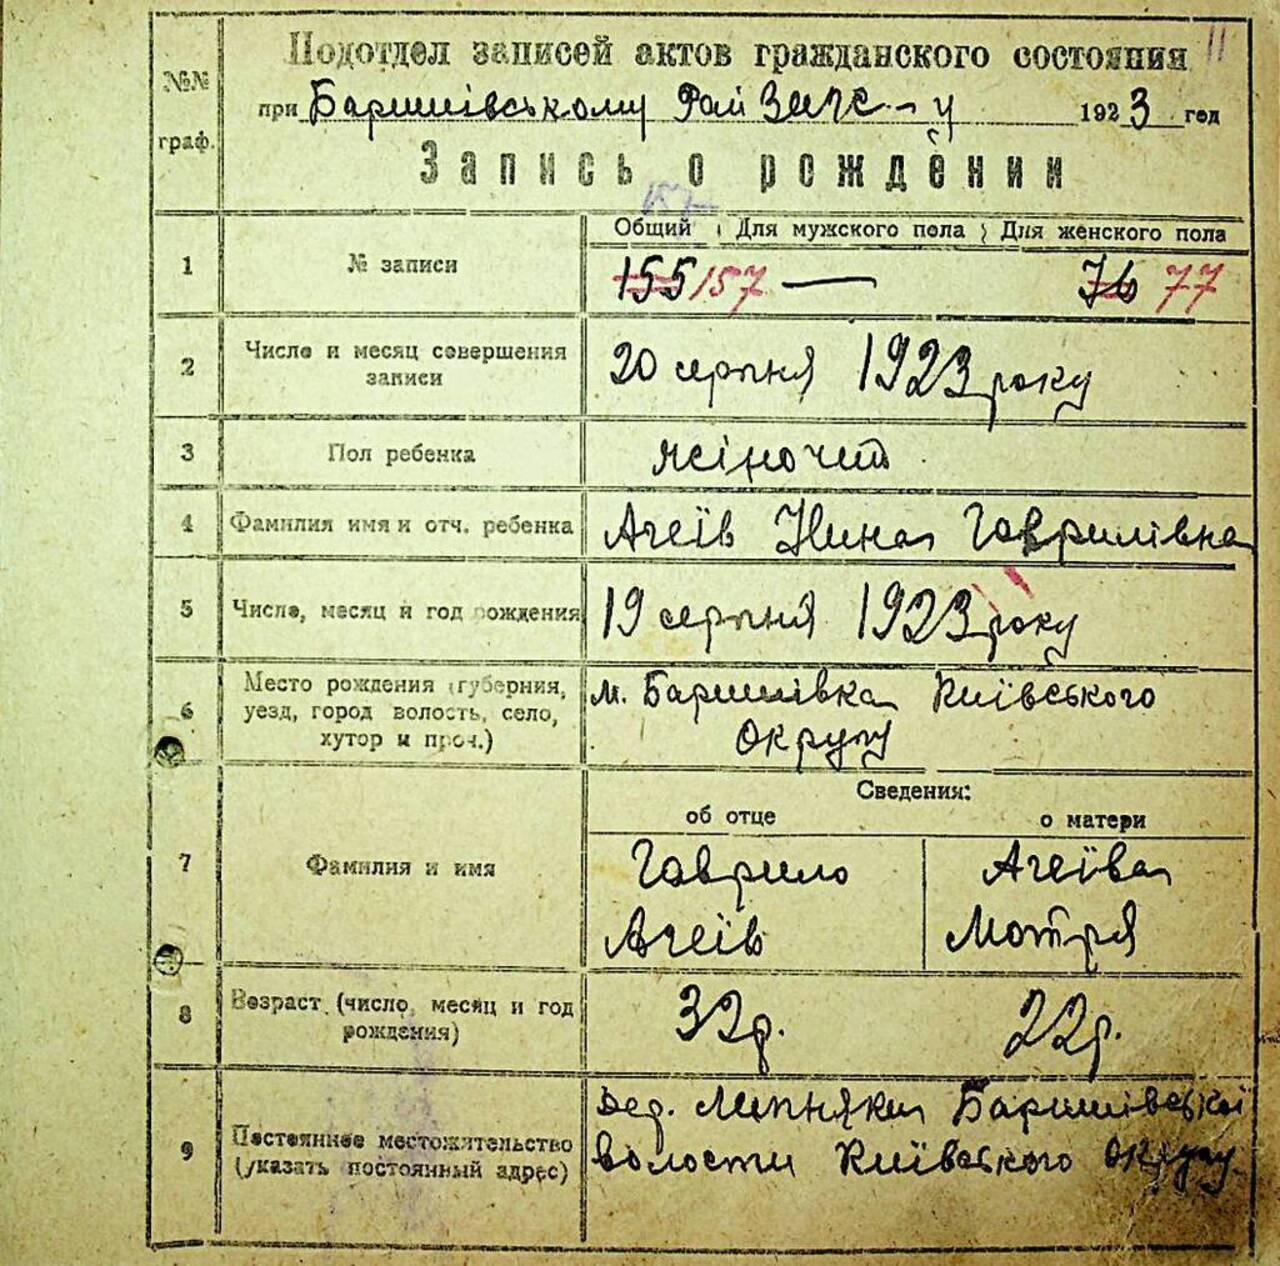 11
№№ граф.
Подотдел записей актов гражданского состояния
при Баришівському Рай Загс-у 1923 год
Запись о рождении
157
Общий Для мужского пола Для женского пола
1 № записи 155 157 — 76 77
2 Число и месяц совершения
записи
20 серпня 1923 року
3 Пол ребенка жіночий
4 Фамилия имя и отч. ребенка Агеїв Нина Гаврилівна
5 Число, месяц и год рождения 19 серпня 1923 року
6 Место рождения (губерния,
уезд, город волость, село,
хутор и проч.)
м. Баришівка Київського
Округу
Сведения:
об отце о матери
7 Фамилия и имя
Гаврило Агеїва
Агеїв Мотря
8 Возраст (число, месяц и год
рождения)
32 р. 22 р.
9 Постоянное местожительство
(указать постоянный адрес)
дер. Липняки Баришівської
волости Київського округу